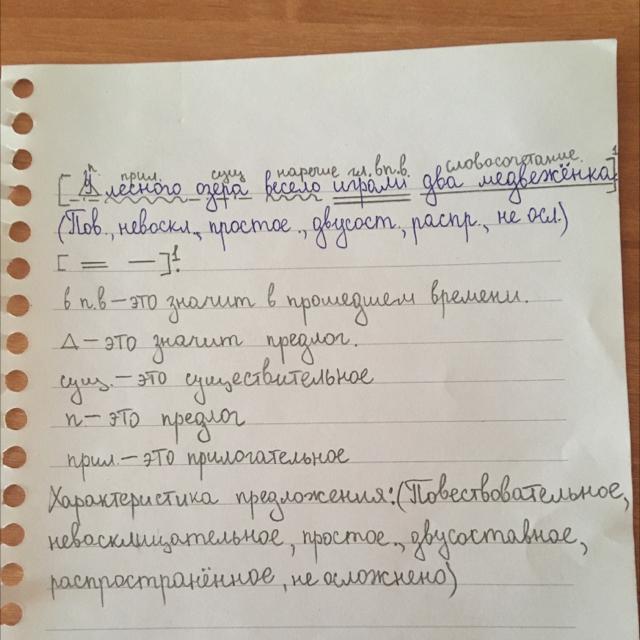 п. прил. сущ нареч гл. вп.в. словосочетание.
[У лесного озера весело играли два медвежёнка]¹
(Пов., невоскл., простое., двусост., распр., не осл.)
[ = — ]¹.
в п.в – это значит в прошедшем времени.
Δ – это значит предлог.
сущ. – это существительное
п – это предлог
прил. – это прилогательное
Характеристика предложения: (Повествовательное,
невосклицательное, простое., двусоставное,
распространённое, не осложнено)